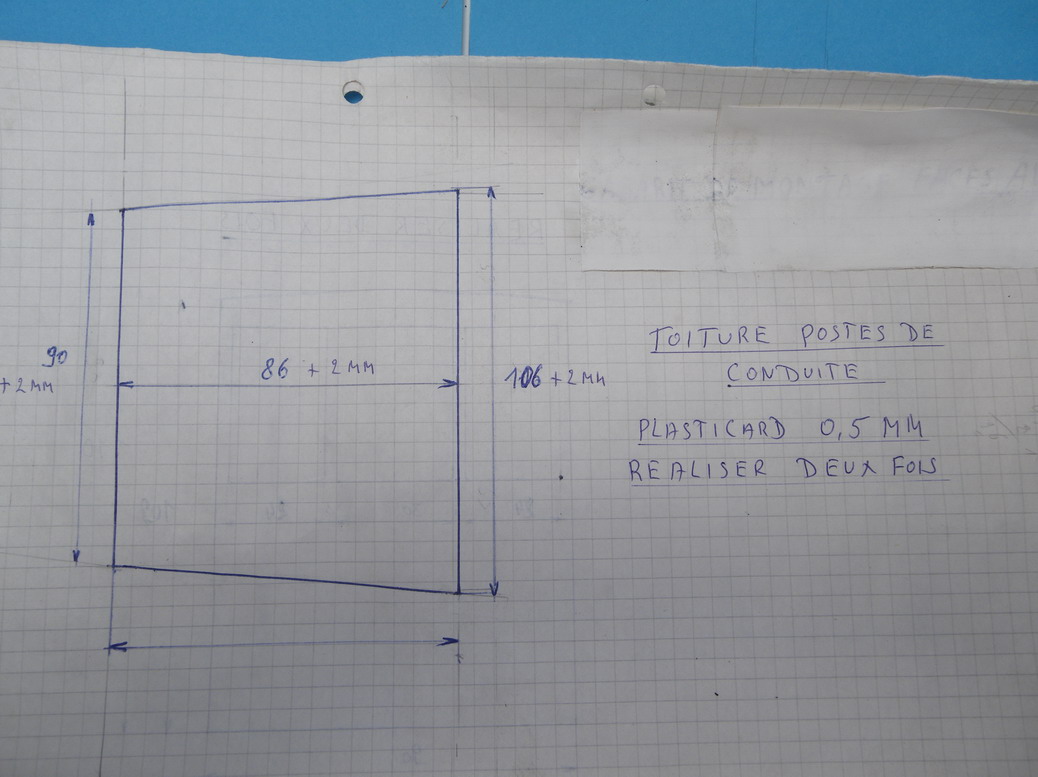 90
+ 2 MM
86 + 2 MM
106 + 2 MM
TOITURE POSTES DE
CONDUITE
PLASTICARD 0,5 MM
REALISER DEUX FOIS